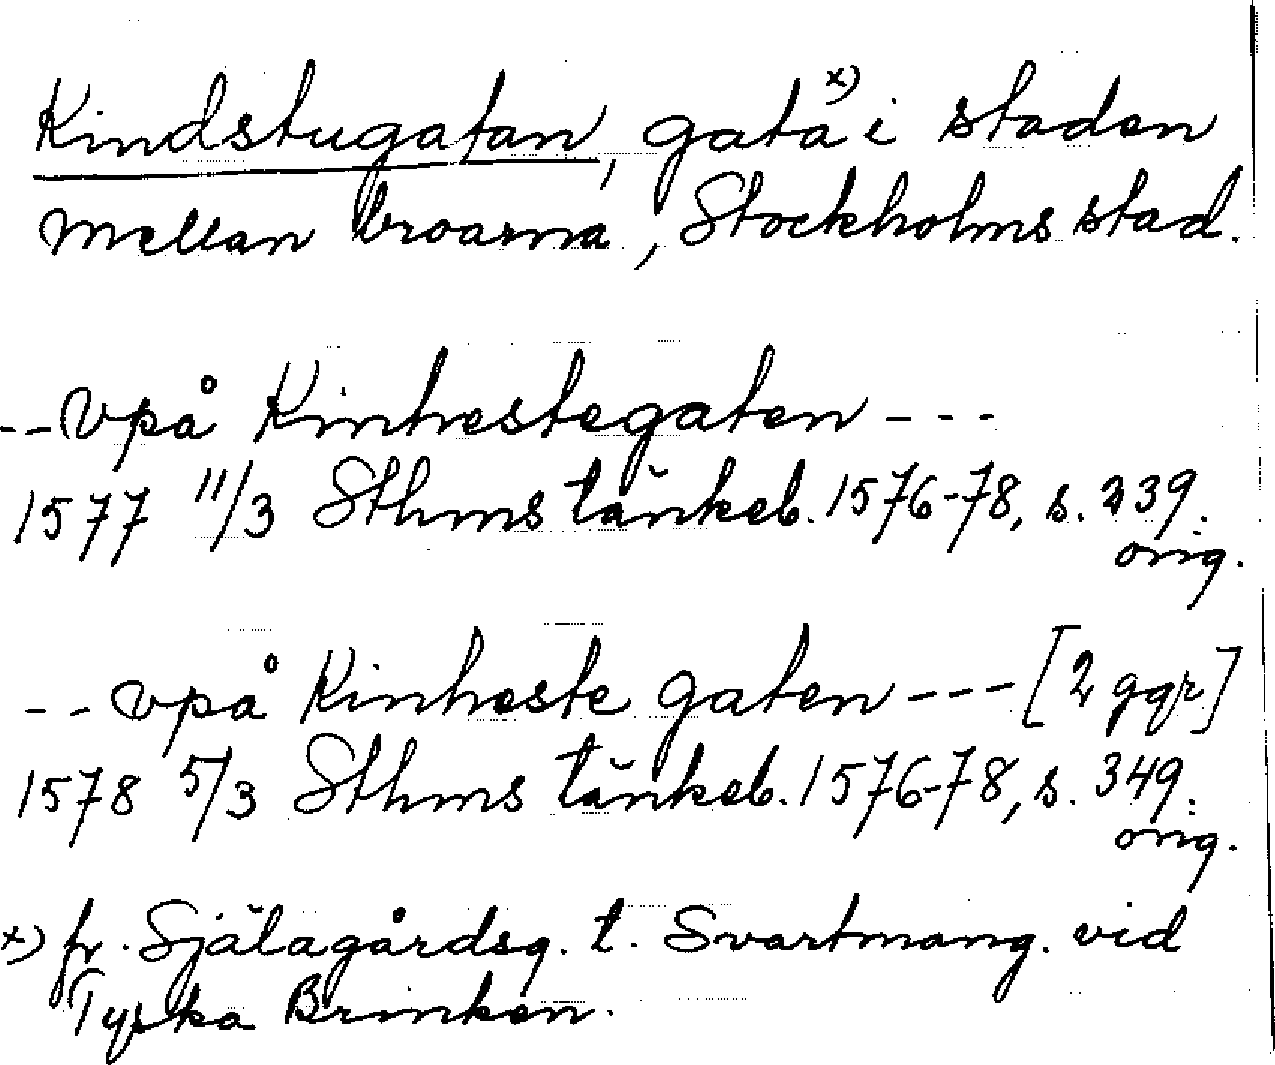 Kindstugatan, gata x) i staden
mellan broarna, Stockholms stad.
-- Vpå Kinhestegaten ---
1577 11/3 Sthms tänkeb. 1576-78, s. 239.
orig.
-- vpå Kinheste gaten --- [2 ggr]
1578 5/3 Sthms tänkeb. 1576-78, s. 349.
orig.
x) fr. Själagårdsg. t. Svartmang. vid
Tyska Brinken.